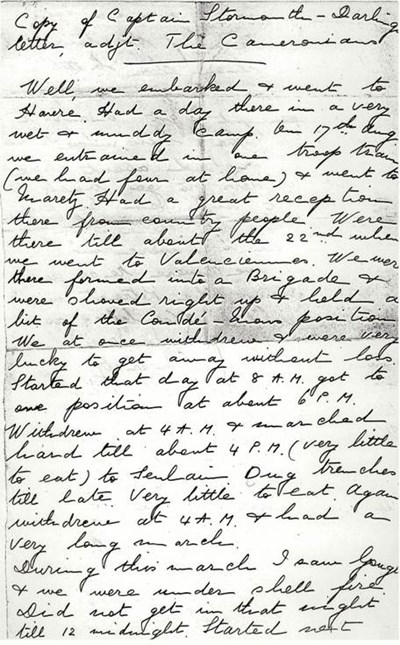 Copy of Captain Stormonth-Darling
letter, adjt. The Cameronians
Well, we embarked & went to
Havre. Had a day there in a very
wet & muddy camp. On 17th Aug
we entrained in one troop train
(we had four at home) & went to
Maretz. Had a great reception
there from country people. Were
there till about the 22nd when
we went to Valenciennes. We were
there formed into a Brigade &
were shoved right up & held a
bit of the Condé-Mons position
We at once withdrew & were very
lucky to get away without loss
Started that day at 8 A.M. got to
one position at about 6 P.M.
Withdrew at 4 A.M. & marched
hard till about 4 P.M. (very little
to eat) to Senlain Dug trenches
till late Very little to eat. Again
withdrew at 4 A.M. & had a
very long march.
During this march I saw
& we were under shell fire.
Did not get in that night
till 12 midnight. Started next